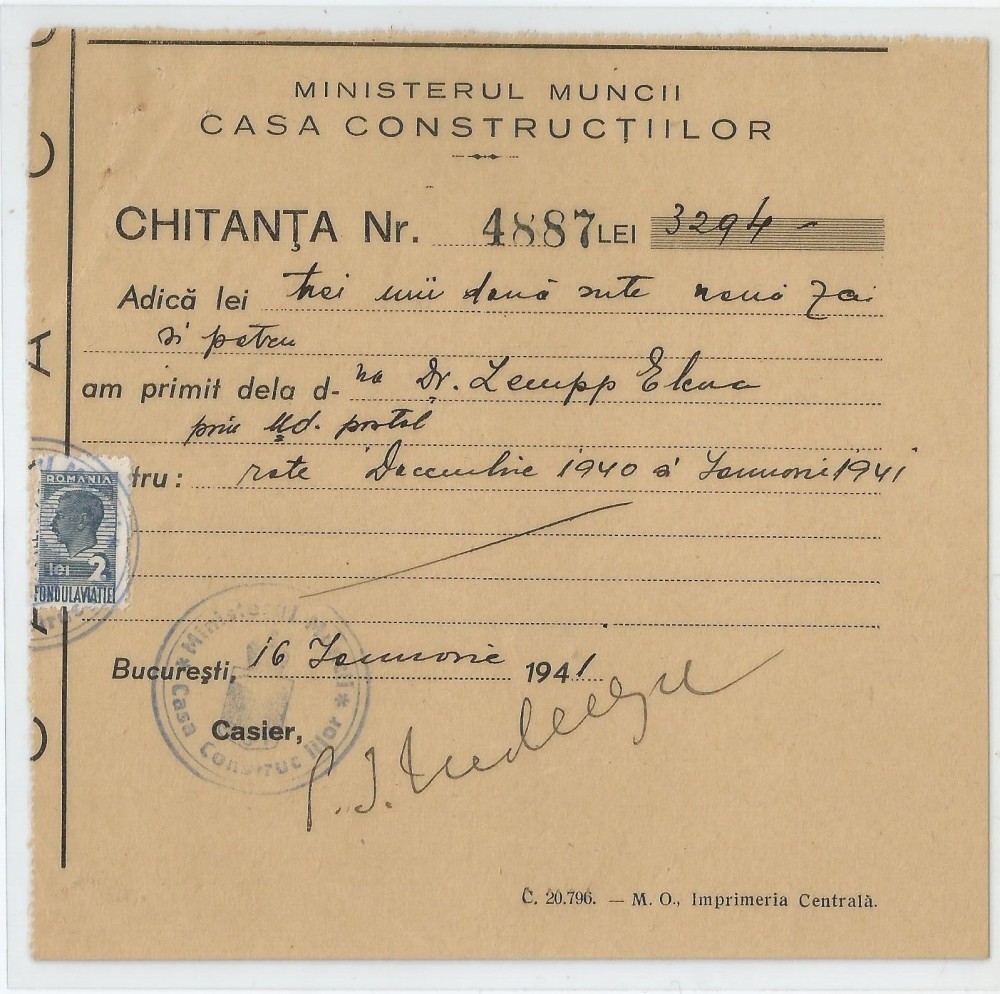 MINISTERUL MUNCII
CASA CONSTRUCȚIILOR
CHITANȚA Nr. 4887 LEI 3294 -
Adică lei trei mii două sute nouă zeci
și patru
am primit dela d-na Dr. Zempp Elena
prin Md. postal
tru: rate Decembrie 1940 și Ianuarie 1941
ROMANIA
lei 2
FONDUL AVIATIEI
* Ministerul Muncii * Casa Construcțiilor
București, 16 Ianuarie 1941
Casier,
C. 20.796. — M. O., Imprimeria Centrală.